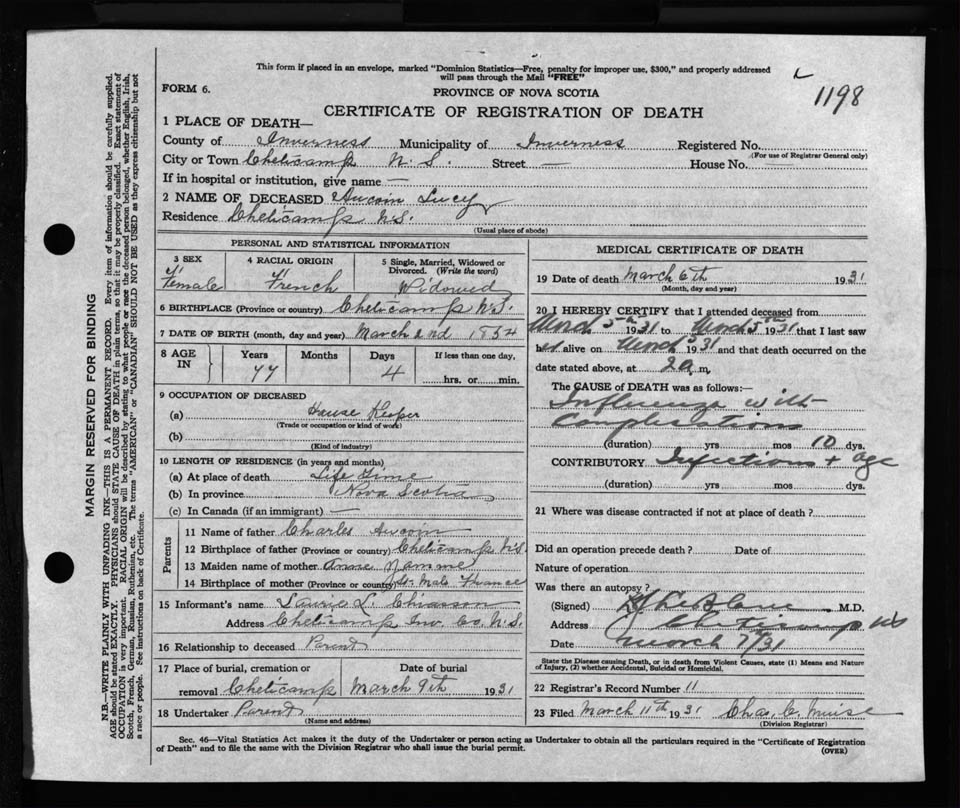 This form if placed in an envelope, marked "Dominion Statistics—Free, penalty for improper use, $300," and properly addressed
will pass through the Mail "FREE"
1198
FORM 6.
PROVINCE OF NOVA SCOTIA
CERTIFICATE OF REGISTRATION OF DEATH
1 PLACE OF DEATH—
County of Inverness Municipality of Inverness Registered No.
(For use of Registrar General only)
City or Town Cheticamp N. S. Street — House No.
If in hospital or institution, give name —
2 NAME OF DECEASED Aucoin Lucy
Residence Cheticamp N.S.
(Usual place of abode)
PERSONAL AND STATISTICAL INFORMATION
3 SEX Female
4 RACIAL ORIGIN French
5 Single, Married, Widowed or Divorced. (Write the word) Widowed
6 BIRTHPLACE (Province or country) Cheticamp N.S.
7 DATE OF BIRTH (month, day and year) March 2nd 1854
8 AGE IN Years 77 Months Days 4 If less than one day, hrs. or min.
9 OCCUPATION OF DECEASED
(a) House Keeper
(Trade or occupation or kind of work)
(b)
(Kind of industry)
10 LENGTH OF RESIDENCE (in years and months)
(a) At place of death Life Time
(b) In province Nova Scotia
(c) In Canada (if an immigrant) —
Parents
11 Name of father Charles Aucoin
12 Birthplace of father (Province or country) Cheticamp N.S.
13 Maiden name of mother Anne
14 Birthplace of mother (Province or country) St. Malo France
15 Informant's name L. Chiasson
Address Cheticamp Inv. Co. N.S.
16 Relationship to deceased Parent
17 Place of burial, cremation or removal Cheticamp Date of burial March 9th 1931
18 Undertaker Parent
(Name and address)
MEDICAL CERTIFICATE OF DEATH
19 Date of death March 6th 1931
(Month, day and year)
20 I HEREBY CERTIFY that I attended deceased from
March 5th 1931 to March 5th 1931 that I last saw
her alive on March 5 1931 and that death occurred on the
date stated above, at 2 a, m.
The CAUSE OF DEATH was as follows:—
Influenza with
Complications
(duration) yrs mos 10 dys.
CONTRIBUTORY Infections + age
(duration) yrs. mos. dys.
21 Where was disease contracted if not at place of death?
Did an operation precede death? Date of
Nature of operation
Was there an autopsy?
(Signed) LeBlanc M.D.
Address Cheticamp NS
Date March 7/31
State the Disease causing Death, or in death from Violent Causes, state (1) Means and Nature
of Injury, (2) whether Accidental, Suicidal or Homicidal.
22 Registrar's Record Number 11
23 Filed March 11th 1931 Chas. C. Muise
(Division Registrar)
Sec. 46—Vital Statistics Act makes it the duty of the Undertaker or person acting as Undertaker to obtain all the particulars required in the "Certificate of Registration
of Death" and to file the same with the Division Registrar who shall issue the burial permit.
(OVER)
MARGIN RESERVED FOR BINDING
N.B.—WRITE PLAINLY WITH UNFADING INK—THIS IS A PERMANENT RECORD. Every item of information should be carefully supplied.
AGE should be stated EXACTLY. PHYSICIANS should STATE CAUSE OF DEATH in plain terms, so that it may be properly classified. Exact statement of
OCCUPATION is very important. RACIAL ORIGIN will be described by stating to what people or race the deceased person belonged, whether English, Irish,
Scotch, French, German, Russian, Ruthenian, etc. The terms "AMERICAN" or "CANADIAN" SHOULD NOT BE USED as they express citizenship but not
a race or people. See instructions on back of Certificate.